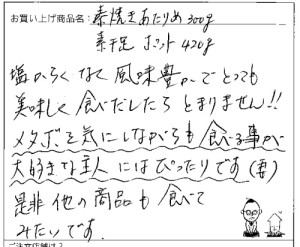 お買い上げ商品名：素焼きあたりめ300g
素干足 ポット420g
塩からくなく風味豊かでとっても
美味しく食べだしたらとまりません!!
メタボを気にしながらも食べる事が
大好きな主人にはぴったりです(妻)
是非他の商品も食べて
みたいです。